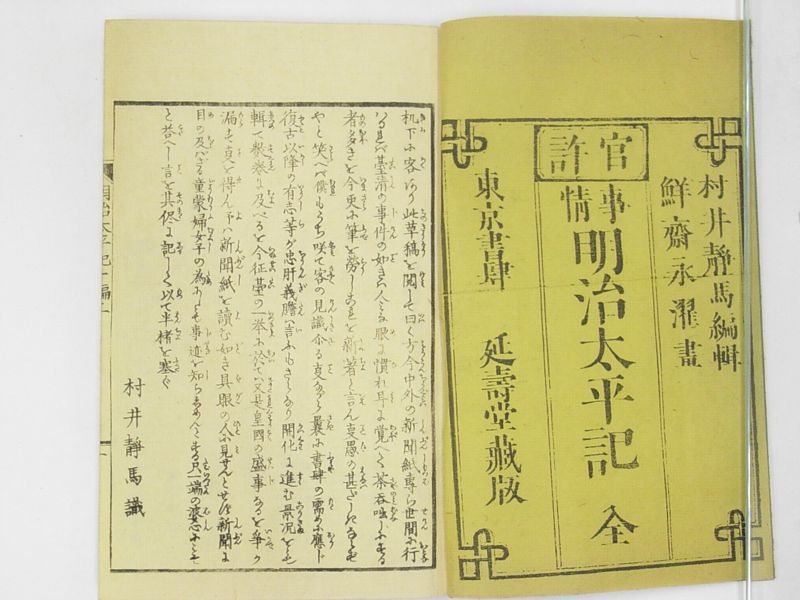 官許
村井靜馬編輯
鮮齋永濯畫
事情
明治太平記 全
東京書肆 延壽堂藏版
机下に客あり此草稿を閲して曰く方今中外の新聞紙專ら世間に行
るれバ臺清の事件の如き人々眼に慣れ耳に覺へて茶呑咄しにする
者多きを今更に筆を勞し
新著と言ん
愚の甚だしき
やと笑へバ僕もうち咲て客の見識
書肆の需めに應じ
復古以降の有志等が忠肝義膽ハ言ふもさらなり開化に進む景況を
輯て數巻に及べるを今征臺の一擧に於てハ又是皇國の盛事なるを爭か
漏すを得ん予ハ新聞紙を讀む如き具眼の人に見せんとせず新聞に
目の及バざる童蒙婦女子の為にも事迹を知らしめんとする只一端の婆心にこそ
と答へし言を其侭に記して以て半楮を塞ぐ
村井靜馬識
明治太平記十編一